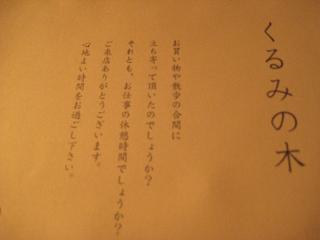 くるみの木
お買い物や散歩の合間に
立ち寄って頂いたのでしょうか？
それとも、お仕事の休憩時間でしょうか？
ご来店ありがとうございます。
心地よい時間をお過ごし下さい。